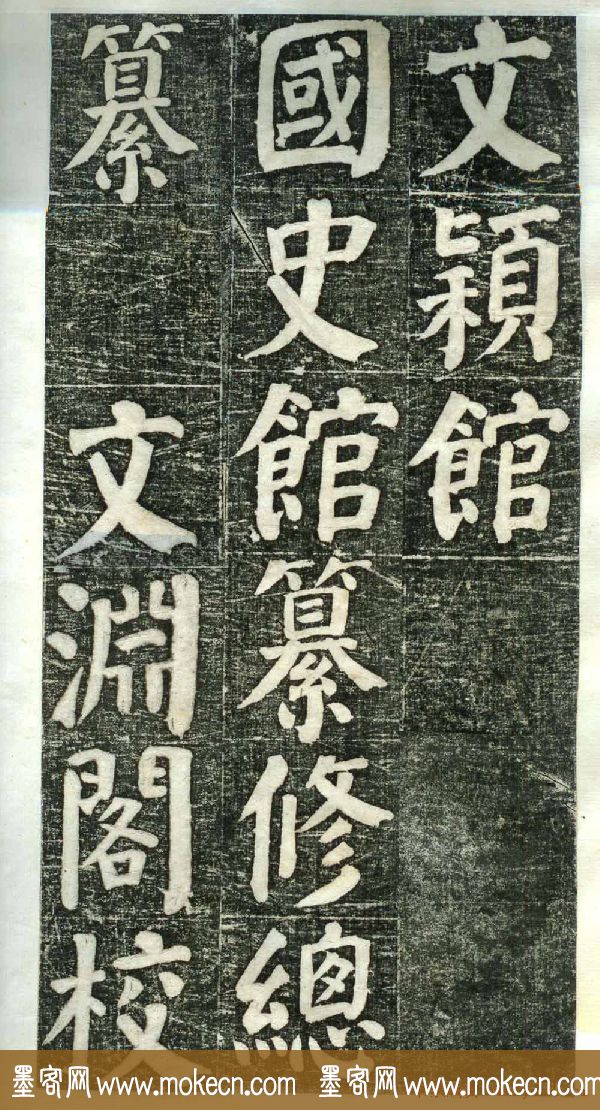 文穎館
國史館纂修總
纂 文淵閣校
墨客网 www.mokecn.com 墨客网 www.mokecn.com